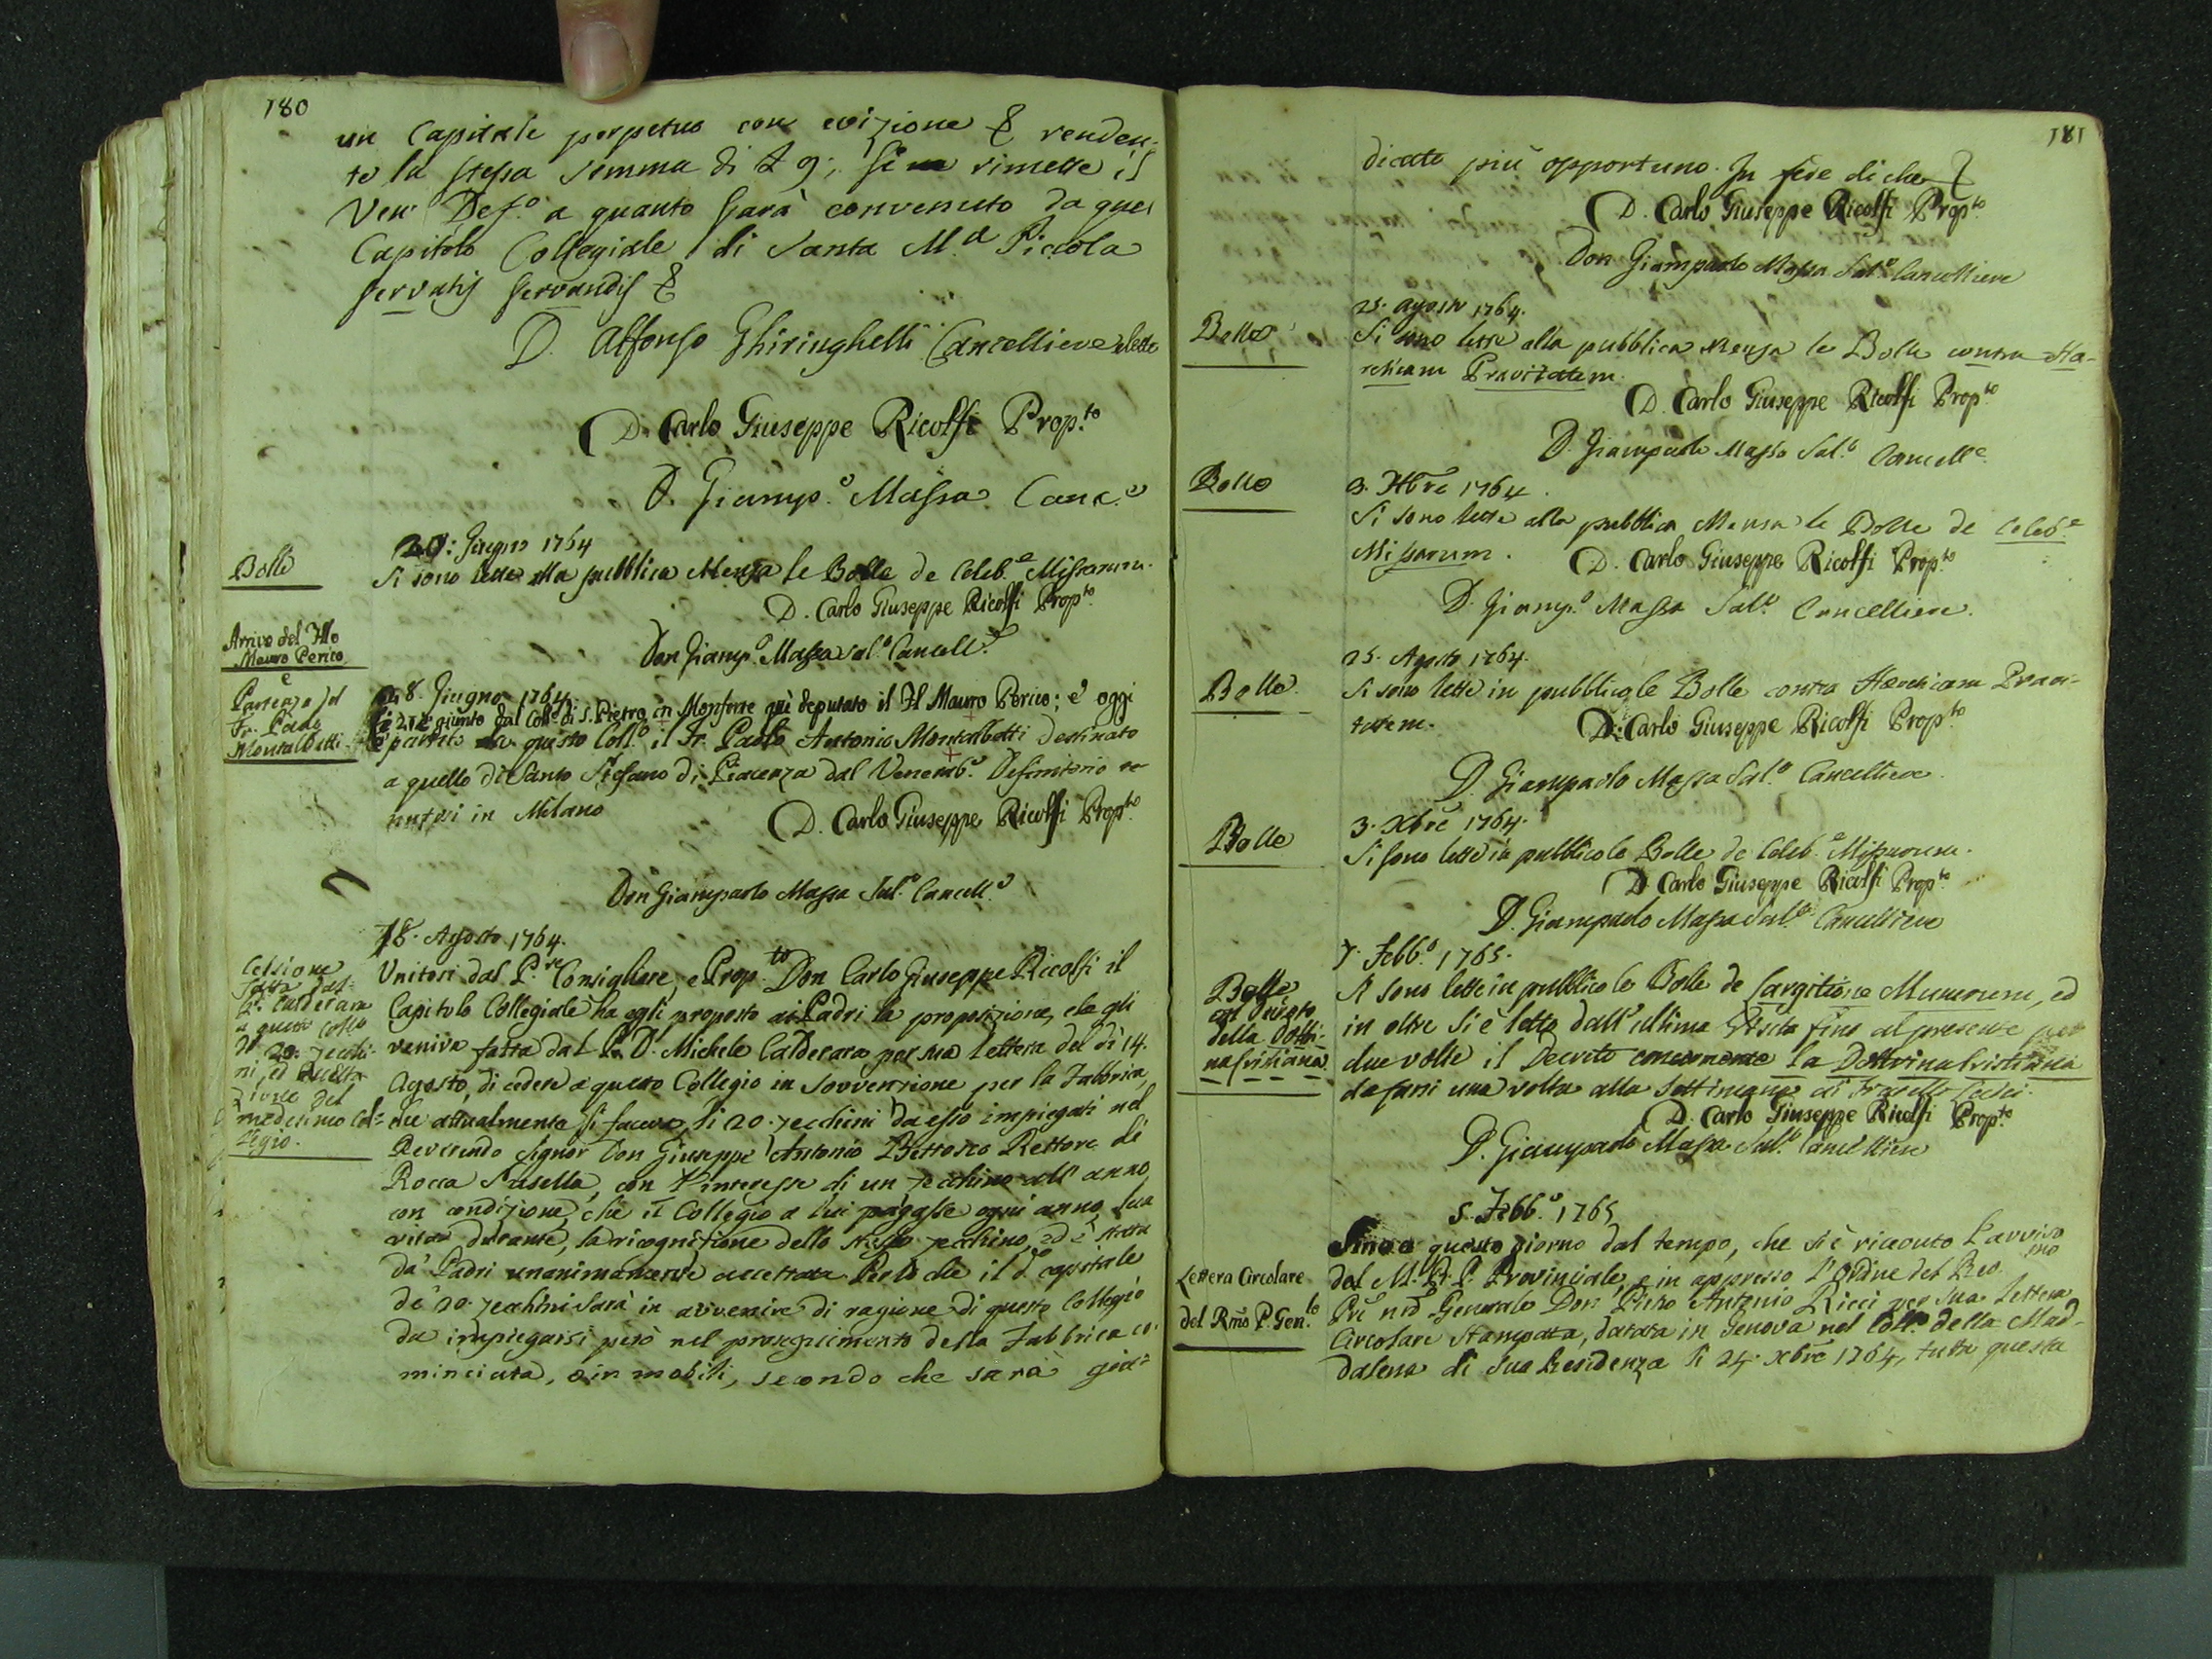 180
un Capitale perpetuo con evizione & renden-
te la stessa somma di £ 9; si rimette il
Ven. Def.o a quanto sarà convenuto da quel
Capitolo Collegiale di Santa M.a Piccola
servatis servandis &
D. Alfonso Ghiringhelli Cancelliere eletto
D. Carlo Giuseppe Ricolfi Prop.to
D. Giamp.o Massa Canc.e
Bolle
20: Giugno 1764
Si sono lette alla pubblica Mensa le Bolle de Celeb.e Missarum.
D. Carlo Giuseppe Ricolfi Prop.to
Don Giamp.o Massa Sal.o Cancell.e
Arrivo del Fllo
Mauro Perico
e
Partenza del
Fr. Paolo
Montalbetti
8. Giugno 1764
è giunto dal Coll.o di S. Pietro in Monforte quì deputato il Fl Mauro Perico; e oggi
è partito da questo Coll.o il Fr. Paolo Antonio Montalbetti destinato
a quello di Santo Stefano di Piacenza dal Venerab.e Definitorio te-
nutosi in Milano
D. Carlo Giuseppe Ricolfi Prop.to
Don Giampaolo Massa Sal.o Cancell.e
18. Agosto 1764.
Cessione
fatta dal
P. Calderara
a questo Collo
di 20. zecchi-
ni, ed
zione del
medesimo Col-
legio.
Unitosi dal P.re Consigliere, e Prop.to Don Carlo Giuseppe Ricolfi il
Capitolo Collegiale ha egli proposto ai Padri la proposizione, che gli
veniva fatta dal P. D. Michele Calderara per sua lettera del dì 14.
Agosto, di cedere a questo Collegio in sovvenzione per la Fabbrica,
che attualmente si faceva, li 20. zecchini da esso impiegati nel
Reverendo Signor Don Giuseppe Antonio Bettosco Rettore di
Rocca Susella, con l'interesse di un zecchino all'anno,
con condizione, che il Collegio a lui pagasse ogni anno, sua
vita durante, la ricognizione dello stesso zecchino, ed è stata
da' Padri unanimamente accettata. Perlo che il d.o capitale
de' 20. zecchini sarà in avvenire di ragione di questo Collegio
da impiegarsi però nel proseguimento della Fabbrica co-
minciata, o in mobili, secondo che sarà giu-
181
dicato più opportuno. In fede di che &
D. Carlo Giuseppe Ricolfi Prop.to
Don Giampaolo Massa Sal.o Cancelliere
25. agosto 1764.
Bolle
Si sono lette alla pubblica Mensa le Bolle contra Hæ-
reticam Pravitatem.
D. Carlo Giuseppe Ricolfi Prop.to
D. Giampaolo Massa Sal.o Cancell.e
Bolle
3. Xbre 1764.
Si sono lette alla pubblica Mensa le Bolle de Celeb.e
Missarum.
D. Carlo Giuseppe Ricolfi Prop.to
D. Giamp.o Massa Sal.o Cancelliere.
25. Agosto 1764.
Bolle.
Si sono lette in pubblico le Bolle contra Hæreticam Pravi-
tatem.
D. Carlo Giuseppe Ricolfi Prop.to
D. Giampaolo Massa Sal.o Cancelliere.
Bolle
3. Xbre 1764.
Si sono lette in pubblico le Bolle de Celeb.e Missarum.
D. Carlo Giuseppe Ricolfi Prop.to
D. Giampaolo Massa Sal.o Cancelliere
7. Febb.o 1765.
Bolle
col Decreto
della Dottri-
na Cristiana
Si sono lette in pubblico le Bolle de Largitione Munerum, ed
in oltre si è letto dall'ultima Visita fino al presente per
due volte il Decreto concernente la Dottrina Cristiana
da farsi una volta alla settimana ai Fratelli Laici.
D. Carlo Giuseppe Ricolfi Prop.to
D. Giampaolo Massa Sal.o Cancelliere
5. Febb.o 1765
Lettera Circolare
del Rmo P. Gen.le
Sino a questo giorno dal tempo, che si è ricevuto l'avviso
dal M. R. P. Provinciale, e in appresso l'ordine del Rev.mo
Pre nro Generale Don Pietro Antonio Ricci per sua lettera
Circolare stampata, datata in Genova nel Coll.o della Mad-
dalena di sua Residenza li 24. Xbre 1764, tutta questa